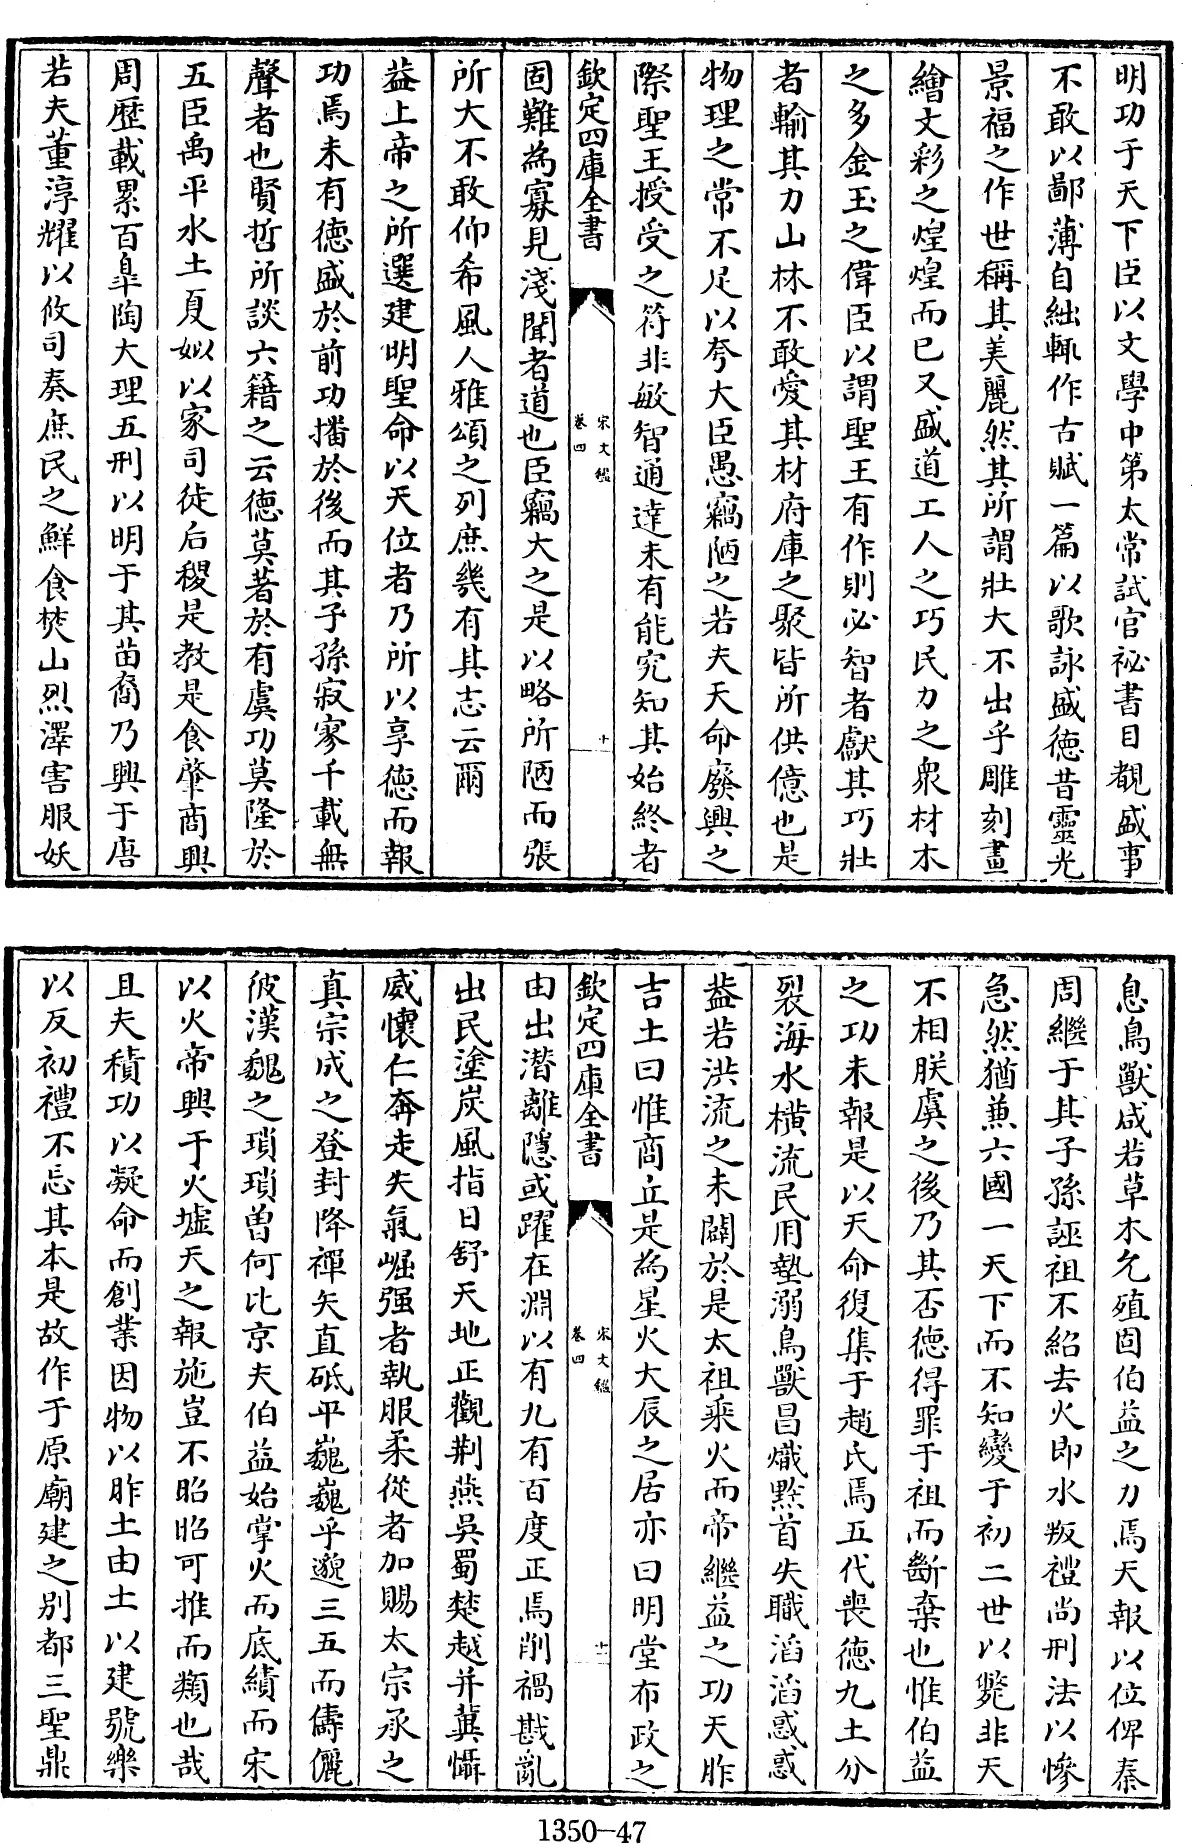 明功于天下臣以文學中第太常試官祕書目覩盛事
不敢以鄙薄自絀輒作古賦一篇以歌詠盛徳昔靈光
景福之作世稱其美麗然其所謂壯大不出乎雕刻畫
繪文彩之煌煌而已又盛道工人之巧民力之衆材木
之多金玉之偉臣以謂聖王有作則必智者獻其巧壯
者輸其力山林不敢愛其材府庫之聚皆所供億也是
物理之常不足以夸大臣愚竊陋之若夫天命廢興之
際聖王授受之符非敏智通達未有能究知其始終者
欽定四庫全書
宋文鑑
卷四
十
固難為寡見淺聞者道也臣竊大之是以略所陋而張
所大不敢仰希風人雅頌之列庶幾有其志云爾
葢上帝之所選建明聖命以天位者乃所以享徳而報
功焉未有徳盛於前功播於後而其子孫寂寥千載無
聲者也賢哲所談六籍之云德莫著於有虞功莫隆於
五臣禹平水土夏姒以家司徒后稷是教是食肇商興
周歴載累百臯陶大理五刑以明于其苗裔乃興于唐
若夫董淳耀以攸司奏庶民之鮮食焚山烈澤害服妖
息鳥獸咸若草木允殖固伯益之力焉天報以位俾秦
周繼于其子孫誣祖不紹去火即水叛禮尚刑法以慘
急然猶兼六國一天下而不知變于初二世以斃非天
不相朕虞之後乃其否德得罪于祖而斷棄也惟伯益
之功未報是以天命復集于趙氏焉五代喪德九土分
裂海水橫流民用墊溺鳥獸昌熾黙首失職滔滔惑惑
葢若洪流之未闢於是太祖乘火而帝繼益之功天胙
吉土曰惟商丘是為星火大辰之居亦曰明堂布政之
欽定四庫全書
宋文鑑
卷四
十一
由出潛離隱或躍在淵以有九有百度正焉削禍戡亂
出民塗炭風指日舒天地正觀荆燕吳蜀楚越并冀懾
威懐仁奔走失氣崛强者執服柔從者加賜太宗承之
真宗成之登封降禪矢直砥平巍巍乎邈三五而儔儷
彼漢魏之瑣瑣曽何比京夫伯益始掌火而底績而宋
以火帝興于火墟天之報施豈不昭昭可推而類也哉
且夫積功以凝命而創業因物以胙土由土以建號樂
以反初禮不忘其本是故作于原廟建之别都三聖鼎
1350-47